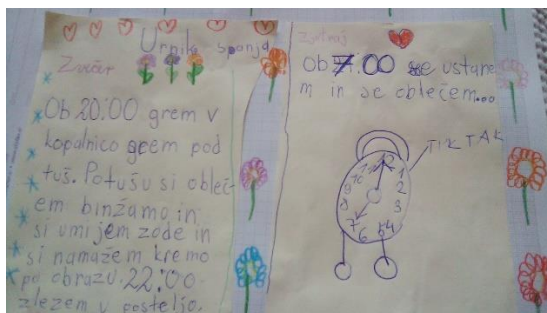 Urnik spanja
Zvečer
Ob 20:00 grem v
kopalnico grem pod
tuš. Potušu si obleč-
em binžamo in
si umijem zode in
si namažem kremo
po obrazu. 22:00
zlezem v posteljo.
zjutraj
Ob 7:00 se ustane
m in se oblečem...
TIK TAK
12
1
2
3
4
5
6
7
8
9
10
11